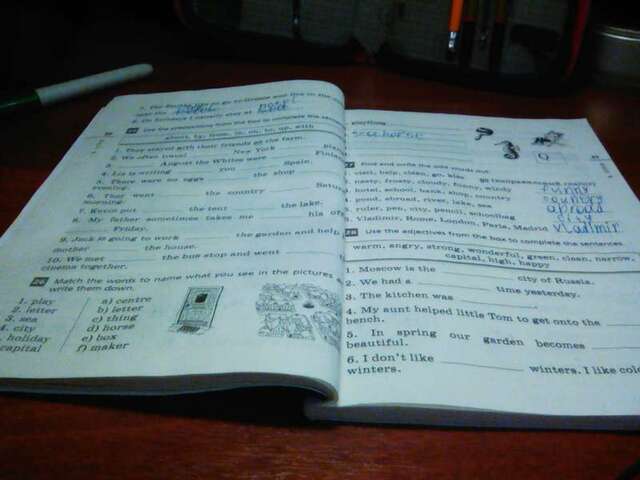 go to Greece and live in the
hotel
6. On Sundays I usually stay at
Use the prepositions from the box to complete the sentences
about, by, from, in, on, to, up, with
1. They stayed with their friends at the farm.
2. We often travel
New York
3. August the Whites were
4. Liz is writing you Spain.
5. There were no eggs the shop
evening.
6. They went the country
morning.
7. Kevin put the tent the lake.
8. My father sometimes takes me his
Friday.
9. Jack is going to work the garden and help
mother the house.
10. We met the bus stop and went
cinema together.
26 Match the words to name what you see in the pictures
write them down.
1. play a) centre
2. letter b) letter
3. sea c) thing
4. city d) horse
holiday e) box
capital f) maker
seahorse
27 Find and write the odd words out.
visit, help, clean, go, kiss
nasty, frosty, cloudy, funny, windy funny
hotel, school, bank, shop, country country
pond, abroad, river, lake, sea abroad
ruler, pen, city, pencil, schoolbag city
Vladimir, Rome, London, Paris, Madrid Vladimir
28 Use the adjectives from the box to complete the sentences.
warm, angry, strong, wonderful, green, clean, narrow,
capital, high, happy
1. Moscow is the city of Russia.
2. We had a time yesterday.
3. The kitchen was
4. My aunt helped little Tom to get onto the
bench.
5. In spring our garden becomes
beautiful.
6. I don't like winters. I like cold
winters.